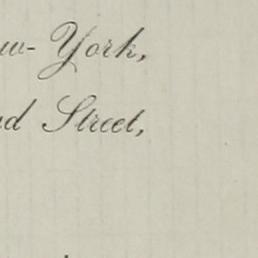 w-York,
d Street,